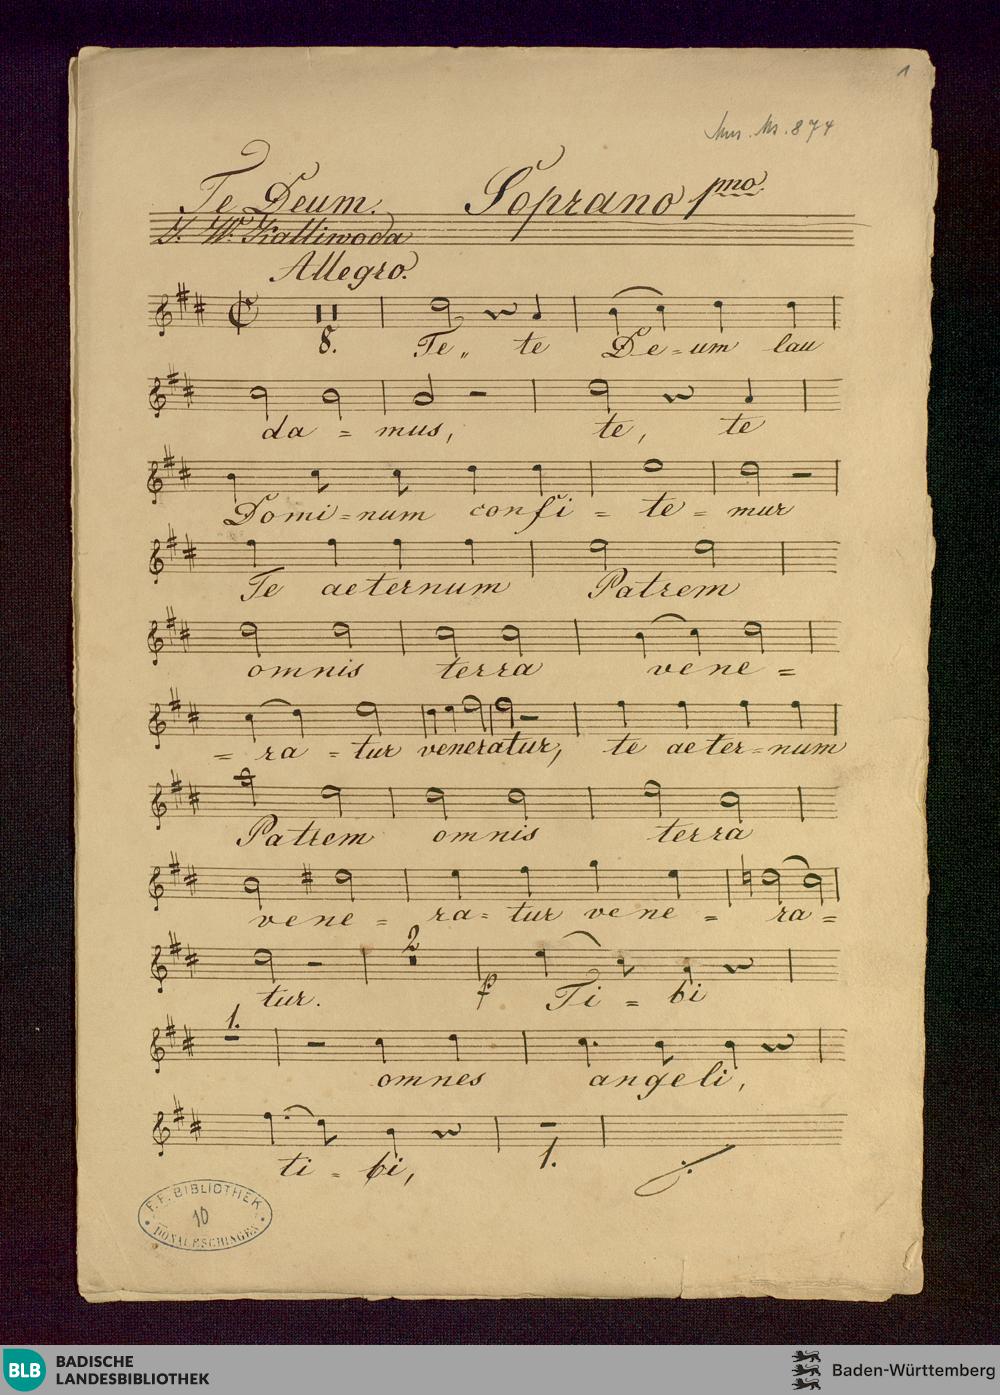 1
Mus. Ms. 874
Te Deum. Soprano pmo.
J. W. Kalliwoda
Allegro.
8. Te,, te De=um lau
da = mus, te, te
Domi=num confi = te = mur
Te aeternum Patrem
omnis terra vene =
= ra = tur veneratur, te aeter=num
Patrem omnis terra
vene = ra = tur vene = ra =
2
tur. p Ti = bi
1.
omnes angeli,
ti = bi, 1.
F. F. BIBLIOTHEK
10
DONAUESCHINGEN
BLB BADISCHE LANDESBIBLIOTHEK
Baden-Württemberg